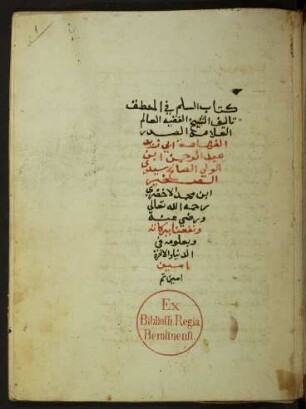 كتاب السلم في المنطق
تاليف الشيخ الفقيه العالم
العلامة الصدر
الفهامة ابي زيد
عبد الرحمن ابن
الولي الصالح سيدي
الصغير
ابن محمد الاخضري
رحمه الله تعالى
ورضي عنه
ونفعنا ببركاته
وبعلومه في
الدنيا والاخرة
امين
امين تم
Ex
Biblioth. Regia
Berolinensi.